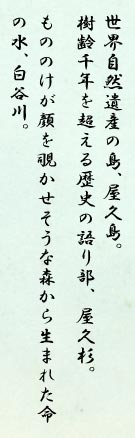 世界自然遺産の島、屋久島。
樹齢千年を超える歴史の語り部、屋久杉。
もののけが顔を覗かせそうな森から生まれた命
の水、白谷川。